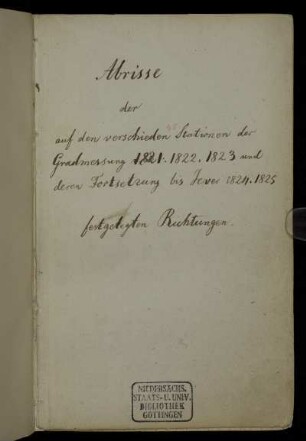 Abrisse
der
auf den verschieden Stationen der
Gradmessung 1821. 1822. 1823 und
deren Fortsetzung bis Jever 1824. 1825
festgelegten Richtungen.
NIEDERSÄCHS.
STAATS-U. UNIV.
BIBLIOTHEK
GÖTTINGEN